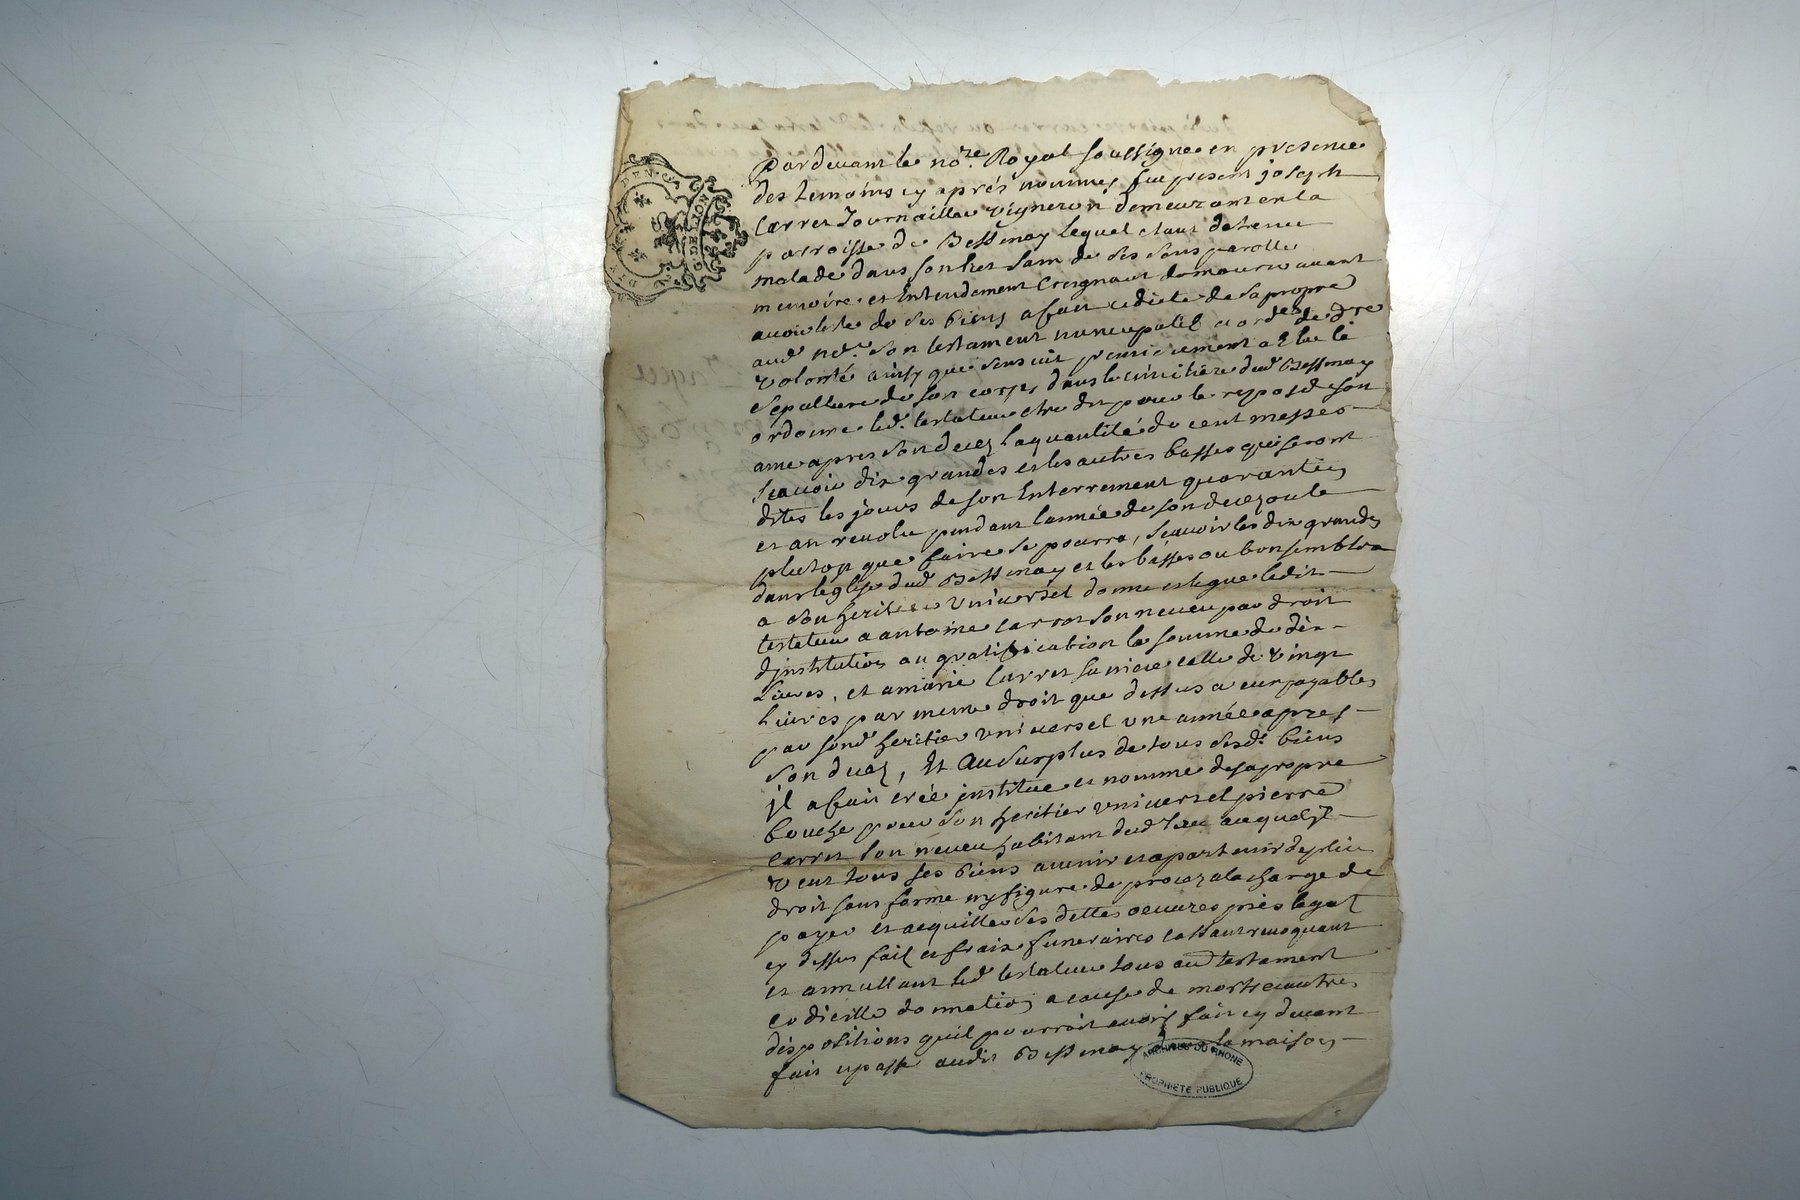 Pardevant le no.re Royal soussigné en presence
des temoins cy aprés nommés fut present joseph
Carret Journaillier vigneron demeurant en la
parroisse de Bessenay lequel etant detenu
malade dans son lict sain de ses sens parolle
memoire et Entendement Creignant de mourir avant
avoir testé de ses biens a fait et dicté de sa propre
aud. no.re son testament nuncupatif et ordce de dre
volonté ainsy que sensuit premierement a Elue le
sepulture de son corps dans le cimitiere dud. Bessenay
ordonne led. testateur etre dit pour le repos de son
ame apres son decez la quantité de cent messes
scavoir dix grandes et les autres basses qui seront
dites les jours de son Enterrement quarantin
et an revolu pendant lannée de son decez ou le
plutop que faire se pourra, scavoir les dix grandes
dans leglise dud. Bessenay et les basses ou bon semblera
a son heritier universel donne et legue ledit
testateur a antoine carret son neveu par droit
dinstitution ou gratification la somme de dix
Livres, et a marie Carret sa niece celle de vingt
Livres par meme droit que dessus a eux payables
par sond. heritier universel une année apres
son decez, Et Au surplus de tous sesd. biens
il a fait créé institue et nomme de sa propre
bouche pour son heritier universel pierre
Carret son neveu habitant dud. lieu auquel il
veut tous ses biens avenir et apartenir de plein
droit sans forme ny figure de procez a la charge de
payer et acquitter ses dettes oeuvres pies legat
cy dessus fait et frais funeraires cassant revoquant
et annullant led. testateur tous aud. testament
codicille donnation a cause de mort et autres
dispositions quil pourroit avoir fait cy devant
fait et passé audit Bessenay dans la maison
GEN. DE LYON
NOT. ROYAUX
ARCHIVES DU RHONE
PROPRIETE PUBLIQUE